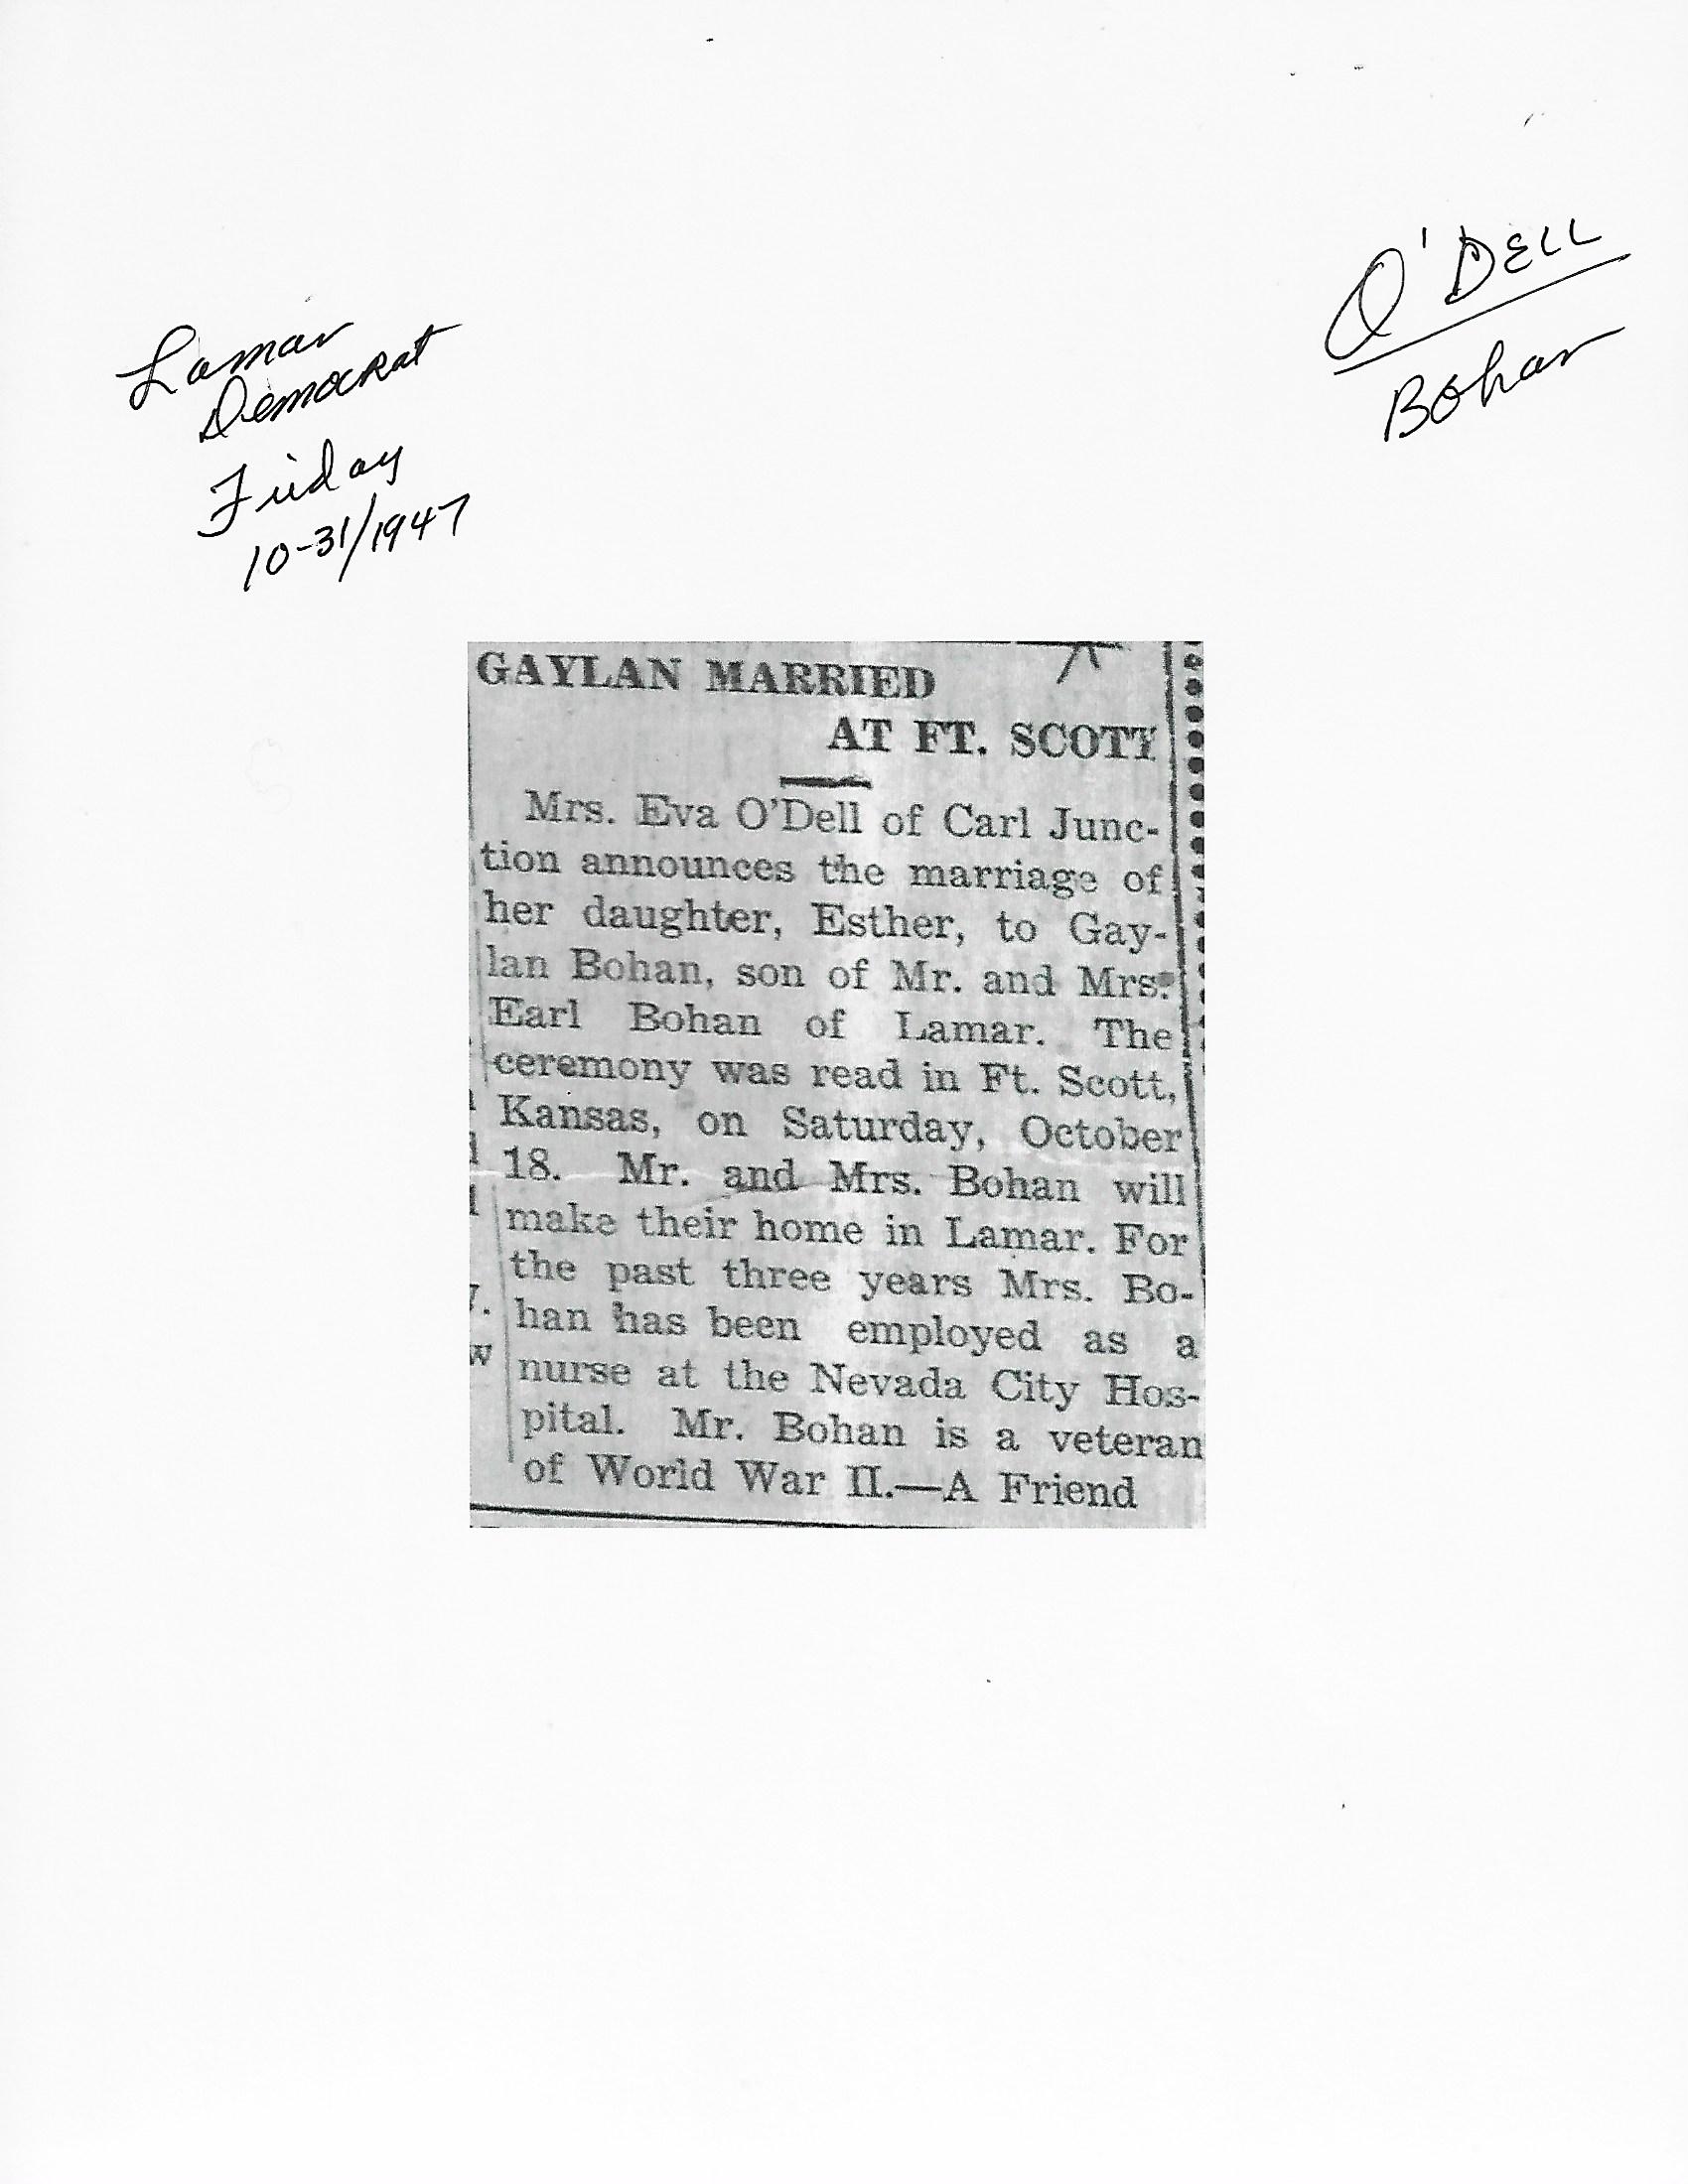 Lamar
Democrat
Friday
10-31/1947
O'DELL
Bohan
GAYLAN MARRIED
AT FT. SCOTT
Mrs. Eva O'Dell of Carl Junc-
tion announces the marriage of
her daughter, Esther, to Gay-
lan Bohan, son of Mr. and Mrs.
Earl Bohan of Lamar. The
ceremony was read in Ft. Scott,
Kansas, on Saturday, October
18. Mr. and Mrs. Bohan will
make their home in Lamar. For
the past three years Mrs. Bo-
han has been employed as a
nurse at the Nevada City Hos-
pital. Mr. Bohan is a veteran
of World War II.—A Friend